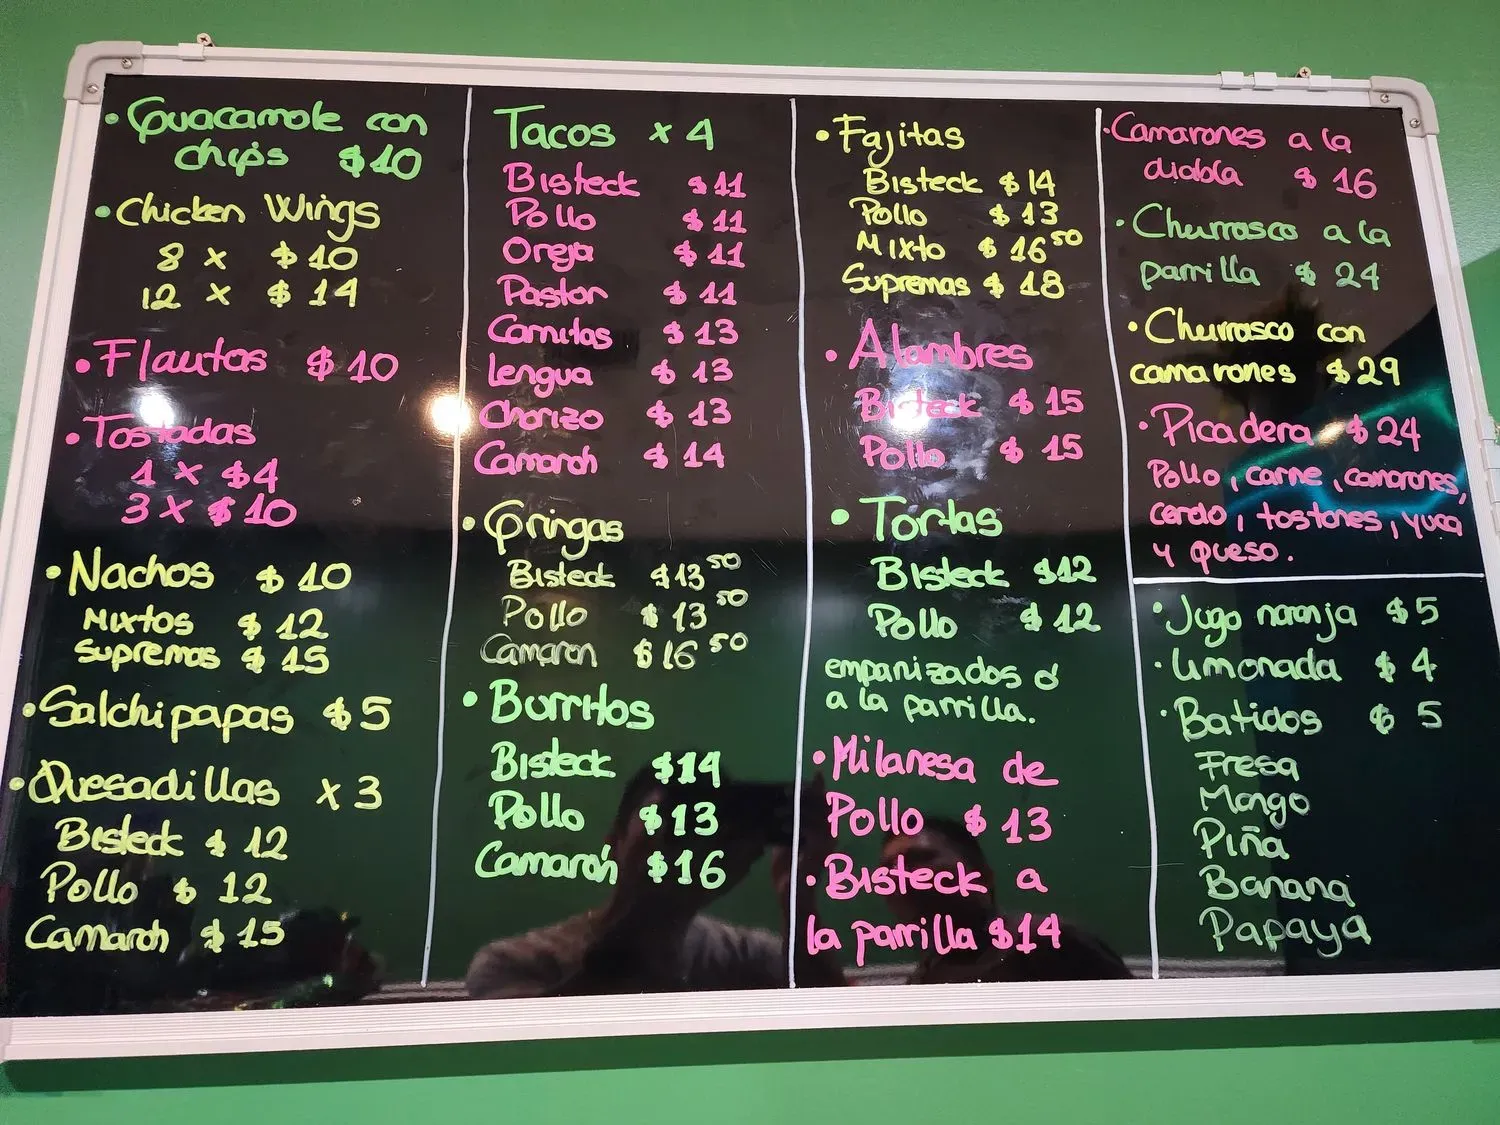 • Guacamole con
chips $10
• Chicken Wings
8 x $10
12 x $14
• Flautas $10
• Tostadas
1 x $4
3 x $10
• Nachos $10
Mixtos $12
Supremos $15
• Salchipapas $5
• Quesadillas x 3
Bisteck $12
Pollo $12
Camaron $15
Tacos x 4
Bisteck $11
Pollo $11
Oreja $11
Pastor $11
Carnitas $13
lengua $13
Chorizo $13
Camaron $14
• Gringas
Bisteck $13 50
Pollo $13 50
Camaron $16 50
• Burritos
Bisteck $14
Pollo $13
Camarón $16
• Fajitas
Bisteck $14
Pollo $13
Mixto $16 50
Supremas $18
• Alambres
Bisteck $15
Pollo $15
• Tortas
Bisteck $12
Pollo $12
empanizados ó
a la parrilla.
• Milanesa de
Pollo $13
• Bisteck a
la parrilla $14
• Camarones a la
diabla $16
• Churrasco a la
parrilla $24
• Churrasco con
camarones $29
• Picadera $24
Pollo, carne, camarones,
cerdo, tostones, yuca
y queso.
• Jugo naranja $5
• Limonada $4
• Batidos $5
Fresa
Mango
Piña
Banana
Papaya